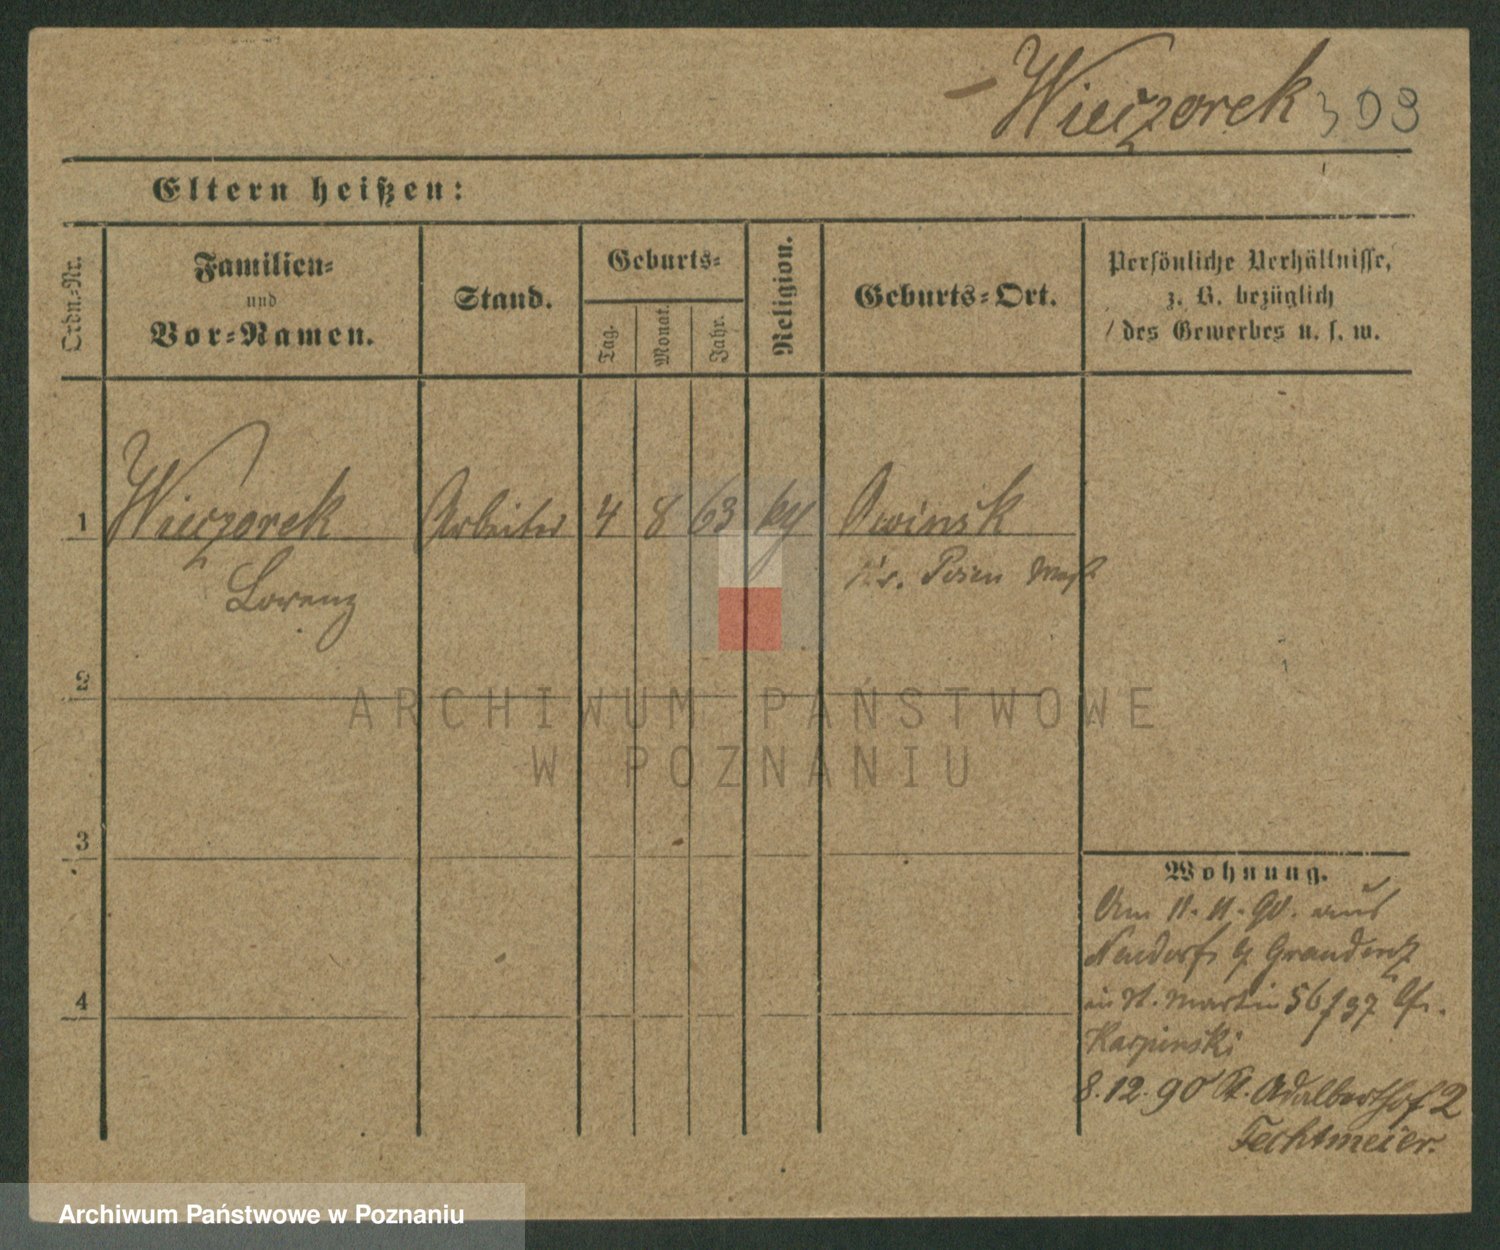 Wieczorek 393
Eltern heißen:
Ordn.-Nr.
Familien-
und
Vor-Namen.
Stand.
Geburts-
Tag.
Monat.
Jahr.
Religion.
Geburts-Ort.
Persönliche Verhältnisse,
z. B. bezüglich
des Gewerbes u. s. w.
1 Wieczorek Arbeiter 4 8 63 kg Owinsk
Lorenz Kr. Posen
2
3
4
Wohnung.
Am 11.11.90. aus
Neudorf Graudenz
in St. Martin 56
Karpinski
8.12.90 St. Adalberthof 2
Techtmeier.
ARCHIWUM PAŃSTWOWE
W POZNANIU
Archiwum Państwowe w Poznaniu